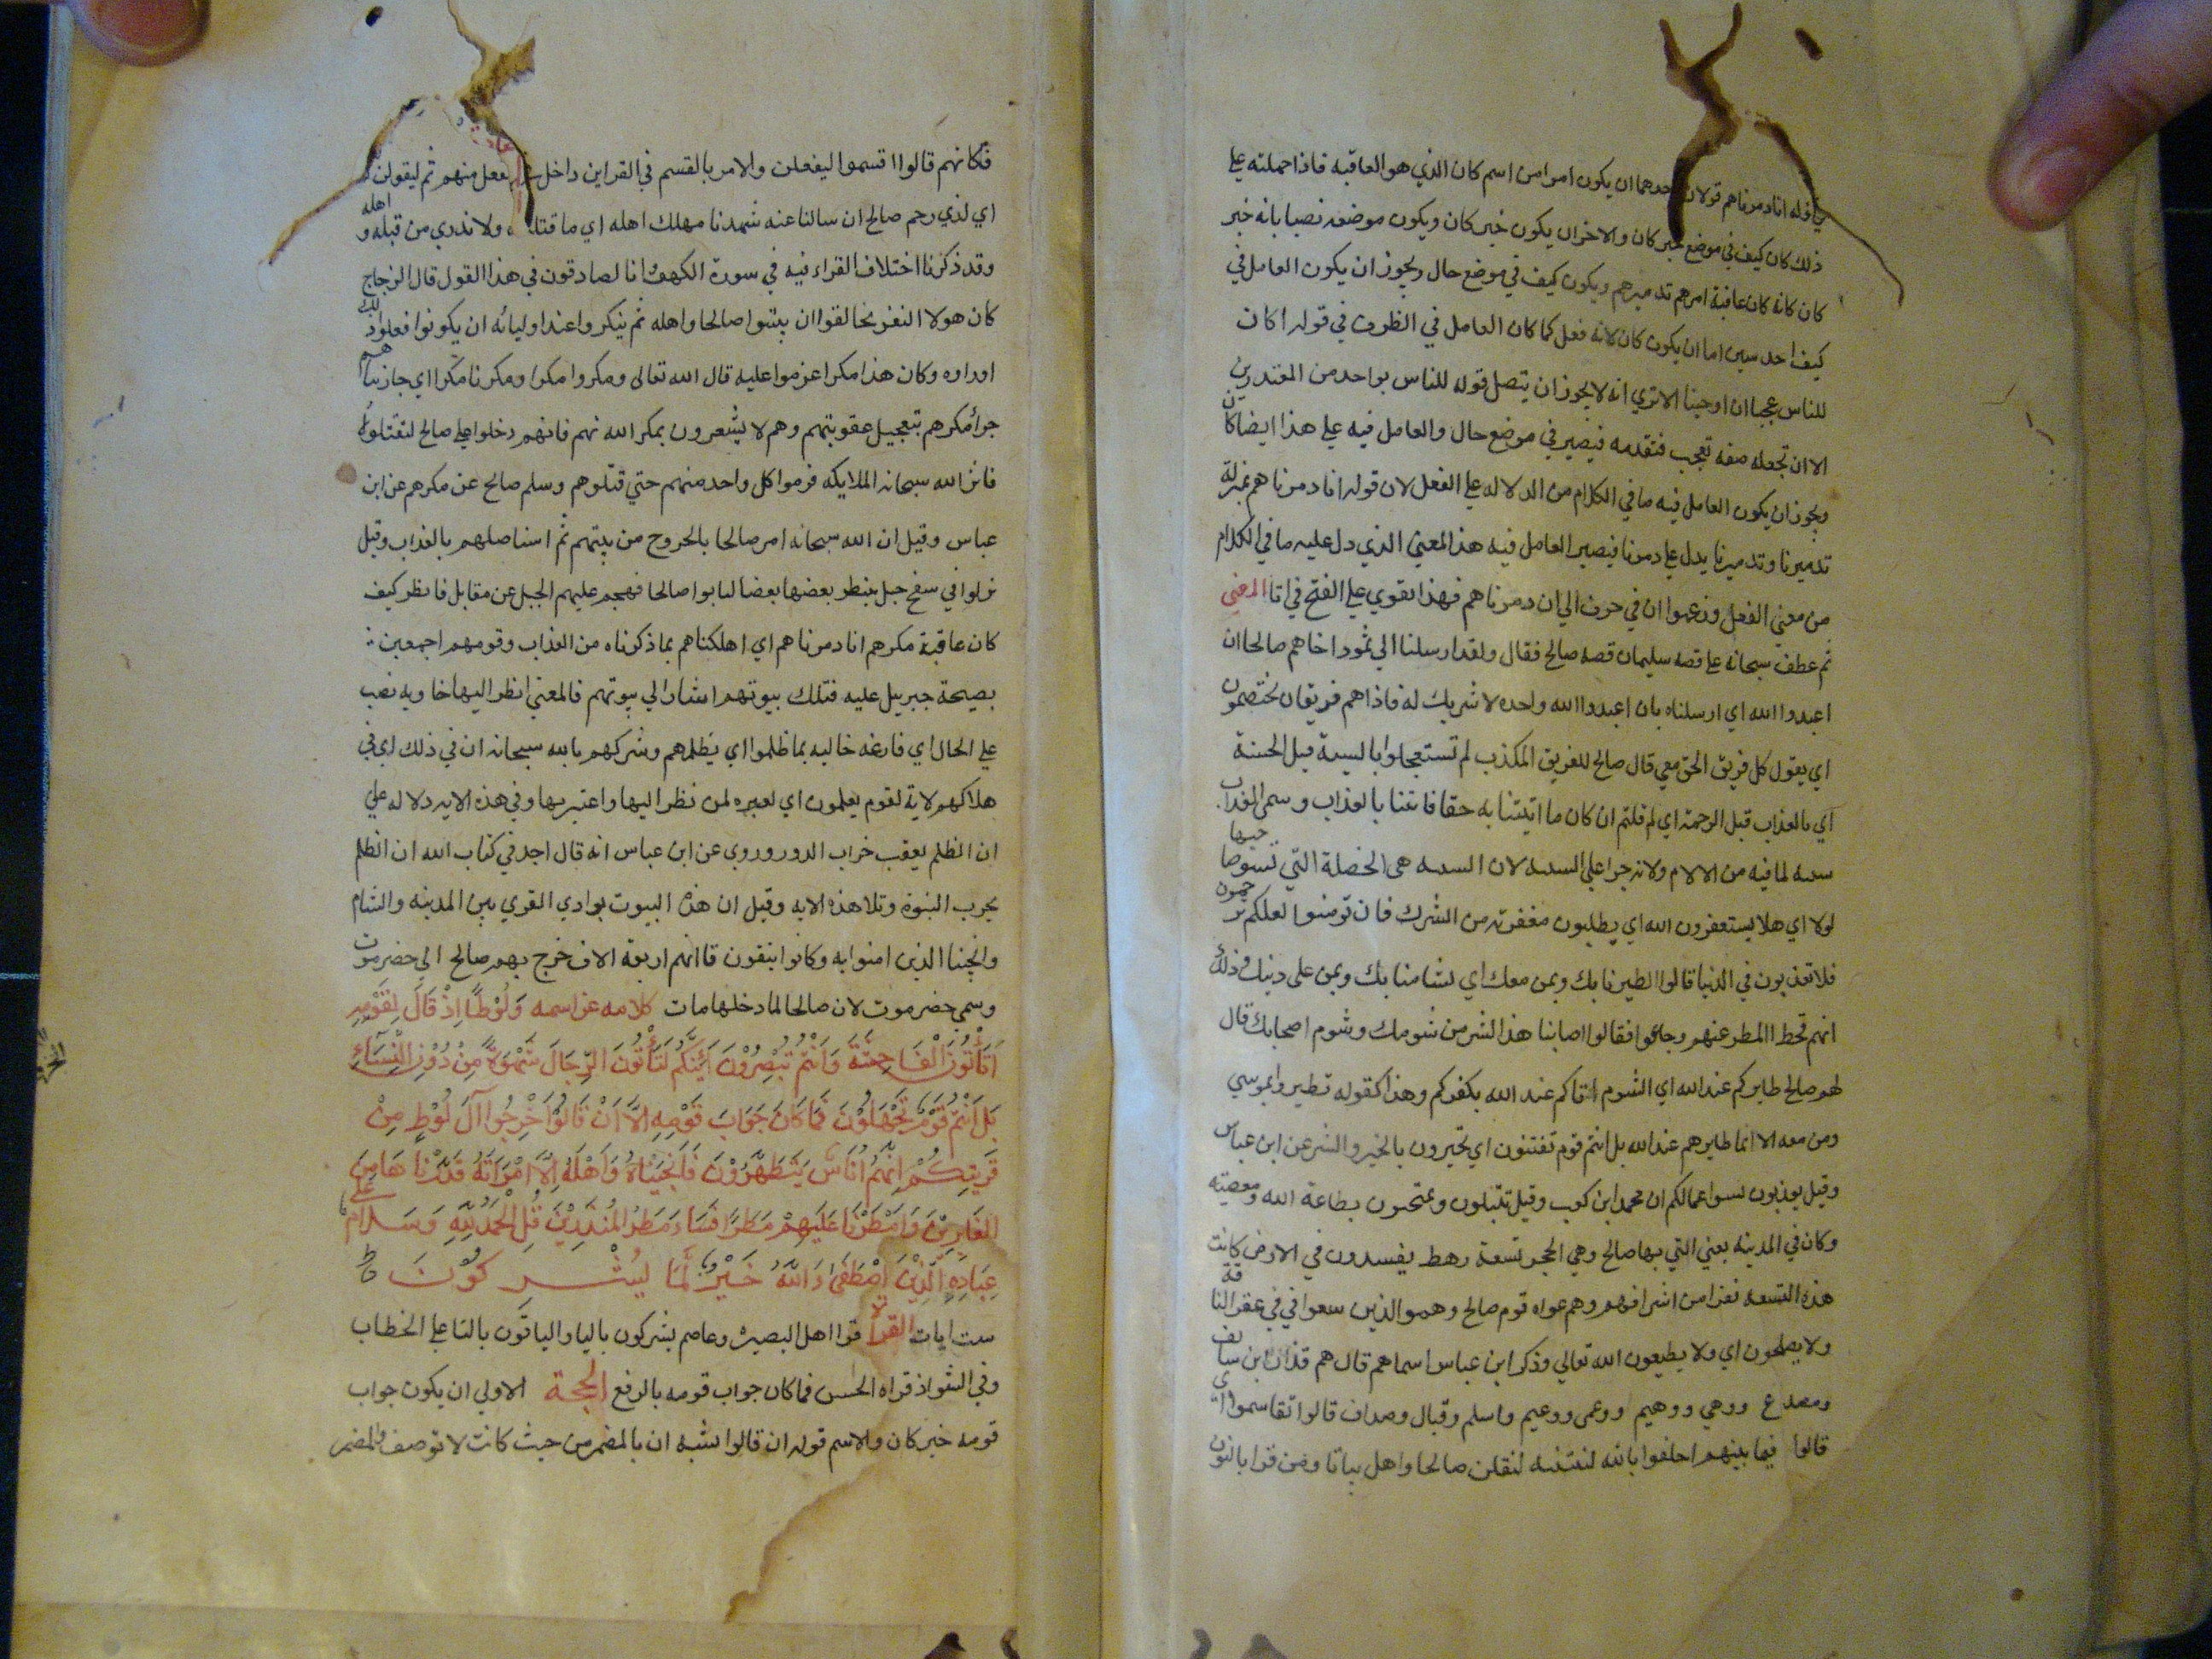 في قوله انا دمرناهم قولان احدهما ان يكون امرا من اسم كان الذي هو العاقبه فاذا حملته علي
ذلك كان كيف في موضع خبر كان والاخران يكون خبر كان ويكون موضعه نصبا بانه خبر
كان كانه كان عاقبة امرهم تدميرهم ويكون كيف في موضع حال ويجوز ان يكون العامل في
كيف احد سين اما ان يكون كان لانه فعل كما كان العامل في الظرف في قوله اكان
للناس عجبا ان اوحينا الا تري انه لا يجوز ان يتصل قوله للناس بواحد من المقتدرين
الا ان تجعله صفه تعجب فتقدمه فيصير في موضع حال والعامل فيه علي هذا ايضا كان
ويجوز ان يكون العامل فيه ما في الكلام من الدلاله علي الفعل لان قوله انا دمرناهم بمنزلة
تدميرنا وتدميرنا يدل علي دمرنا فيصير العامل فيه هذا المعني الذي دل عليه ما في الكلام
من معني الفعل وزعموا ان في حرف ابي ان دمرناهم فهذا يقوي علي الفتح في انا المعني
ثم عطف سبحانه علي قصه سليمان قصه صالح فقال ولقد ارسلنا الي ثمود اخاهم صالحا ان
اعبدوا الله اي ارسلناه بان اعبدوا الله وحده لا شريك له فاذا هم فريقان يختصمون
اي يقول كل فريق الحق معي قال صالح للفريق المكذب لم تستعجلوا بالسية قبل الحسنة
اي بالعذاب قبل الرحمة اي لم قلتم ان كان ما اتيتنا به حقا فاتنا بالعذاب وسمي العذاب
سيه لما فيه من الالام ولانه جزا علي السيه لان السيه هي الخصلة التي تسو صاحبها
لولا اي هلا يستغفرون الله اي يطلبون مغفرته من الشرك فان تومنوا لعلكم ترحمون
فلا تعذبون في الدنيا قالوا اطيرنا بك وبمن معك اي تشامنا بك وبمن علي دينك وذلك
انهم قحط المطر عنهم وجاعوا فقالوا اصابنا هذا الشر من شومك وشوم اصحابك قال
لهم صالح طايركم عند الله اي الشوم اتاكم عند الله بكفركم وهذا كقوله تطيروا بموسي
ومن معه الا انما طايرهم عند الله بل انتم قوم تفتنون اي تختبرون بالخير والشر عن ابن عباس
وقيل يعذبون بسوا عمالكم ان محمد ابن كعب وقيل تبتلون وتمتحنون بطاعة الله ومعصيته
وكان في المدينه يعني التي بها صالح وهي الحجر تسعة رهط يفسدون في الارض كانت
هذه التسعه نفرا من اشرافهم وهم عواه قوم صالح وهم الذين سعوا في في عقر الناقة
ولا يصلحون اي ولا يطيعون الله تعالي وذكر ابن عباس اسماهم قال هم قدار ابن سالف
ومصدع ودهي ودهيم ودعمي ودعيم واسلم وقبال وصداف قالوا تقاسموا اي
قالوا فيما بينهم احلفوا بالله لنبيتنه لنقلن صالحا واهل بياتا ومن قرا بالنون
فكانهم قالوا اقسموا ليفعلن والامر بالقسم في القراين داخل فعل منهم ثم ليقولن
اي لذي رحم صالح ان سالنا عنه شهدنا مهلك اهله اي ما قتلنا ولا ندري من قبله و اهله
وقد ذكرنا اختلاف القراء فيه في سورة الكهف انا لصادقون في هذا القول قال الزجاج
كان هولا النفر تحالفوا ان يبيتوا صالحا واهله ثم ينكروا عند اوليائه ان يكونوا فعلوا ذلك
اوراوه وكان هذا مكرا عزموا عليه قال الله تعالي ومكروا مكرا ومكرنا مكرا اي جازيناهم
جزا مكرهم بتعجيل عقوبتهم وهم لا يشعرون بمكر الله بهم فانهم دخلوا علي صالح لتقتلوه
فانزل الله سبحانه الملايكه فرموا كل واحد منهم حتي قتلوهم وسلم صالح عن مكرهم عن ابن
عباس وقيل ان الله سبحانه امر صالحا بالخروج من بينهم ثم استاصلهم بالعذاب وقيل
نزلوا في سفح جبل ينظر بعضها بعضا ليا بوا صالحا فهجم عليهم الجبل عن مقابل فانظر كيف
كان عاقبة مكرهم انا دمرناهم اي اهلكناهم بما ذكرناه من العذاب وقومهم اجمعين
بصيحة جبرييل عليه فتلك بيوتهم اشار الي بيوتهم فالمعني انظر اليها خاويه نصب
علي الحال اي فارغه خاليه بما ظلموا اي بظلمهم وشركهم بالله سبحانه ان في ذلك اي في
هلاكهم لاية لقوم يعلمون اي لعبره لمن نظر اليها واعتبر بها وفي هذه الايه دلاله علي
ان الظلم يعقب خراب الدور وروي عن ابن عباس انه قال اجد في كتاب الله ان الظلم
يخرب البيوت وتلا هذه الايه وقيل ان هذه البيوت بوادي القري بين المدينه والشام
وانجينا الذين امنوا به وكانوا يتقون قا انهم اربعة الاف خرج بهم صالح الي حضرموت
وسمي حضرموت لان صالحا لما دخلها مات كلامه عن اسمه وَلُوْطًا اِذْ قَالَ لِقَوْمِهِ
اَتَأْتُوْنَ الْفَاحِشَةَ وَاَنْتُمْ تُبْصِرُوْنَ اَئِنَّكُمْ لَتَأْتُوْنَ الرِّجَالَ شَهْوَةً مِنْ دُوْنِ النِّسَآءِ
بَلْ اَنْتُمْ قَوْمٌ تَجْهَلُوْنَ فَمَا كَانَ جَوَابَ قَوْمِهِ اِلَّا اَنْ قَالُوْا اَخْرِجُوْا آلَ لُوْطٍ مِنْ
قَرْيَتِكُمْ اِنَّهُمْ اُنَاسٌ يَتَطَهَّرُوْنَ فَاَنْجَيْنَاهُ وَاَهْلَهُ اِلَّا امْرَاَتَهُ قَدَّرْنَاهَا مِنَ
الْغَابِرِيْنَ وَاَمْطَرْنَا عَلَيْهِمْ مَطَرًا فَسَاءَ مَطَرُ الْمُنْذَرِيْنَ قُلِ الْحَمْدُ لِلّٰهِ وَسَلَامٌ عَلٰي
عِبَادِهِ الَّذِيْنَ اصْطَفٰي ءَاللّٰهُ خَيْرٌ اَمَّا يُشْرِكُوْنَ
ست ايات القراة قرا اهل البصره وعاصم يشركون باليا والباقون بالتا علي الخطاب
وفي الشواذ قراه الحسن فما كان جواب قومه بالرفع الحجة الاولي ان يكون جواب
قومه خبر كان والاسم قوله ان قالوا لشبه ان بالمضمر من حيث كانت لا توصف والمضمر